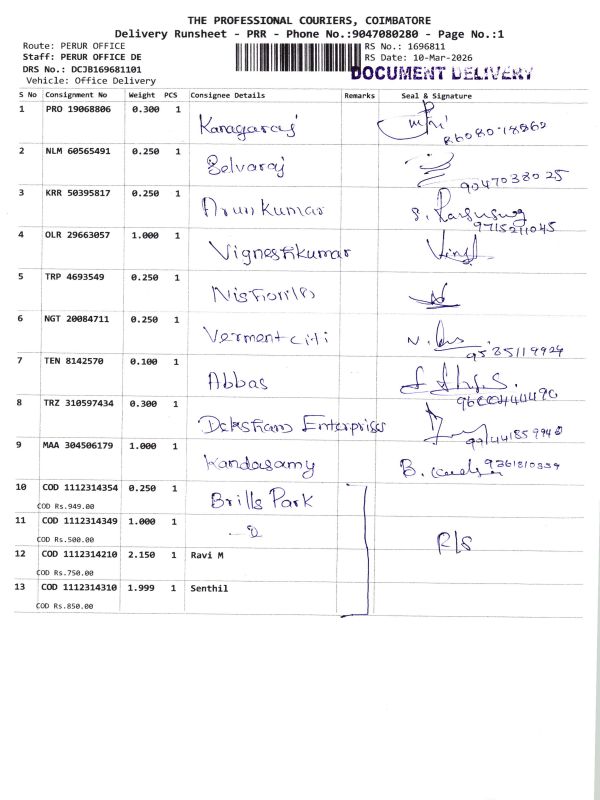 THE PROFESSIONAL COURIERS, COIMBATORE
Delivery Runsheet - PRR - Phone No.:9047080280 - Page No.:1
Route: PERUR OFFICE RS No.: 1696811
Staff: PERUR OFFICE DE RS Date: 10-Mar-2026
DRS No.: DCJB169681101 DOCUMENT DELIVERY
Vehicle: Office Delivery
S No Consignment No Weight PCS Consignee Details Remarks Seal & Signature
1 PRO 19068806 0.300 1 Kanagaraj
2 NLM 60565491 0.250 1 Selvaraj 9047038025
3 KRR 50395817 0.250 1 Arun Kumar 9715211045
4 OLR 29663057 1.000 1 Vigneshkumar
5 TRP 4693549 0.250 1
6 NGT 20084711 0.250 1 9535119924
7 TEN 8142570 0.100 1 Abbas
8 TRZ 310597434 0.300 1 Daksham Enterprises
9 MAA 304506179 1.000 1 Kandasamy
10 COD 1112314354 0.250 1 Brills Park
COD Rs.949.00
11 COD 1112314349 1.000 1
COD Rs.500.00 R/S
12 COD 1112314210 2.150 1 Ravi M
COD Rs.750.00
13 COD 1112314310 1.999 1 Senthil
COD Rs.850.00